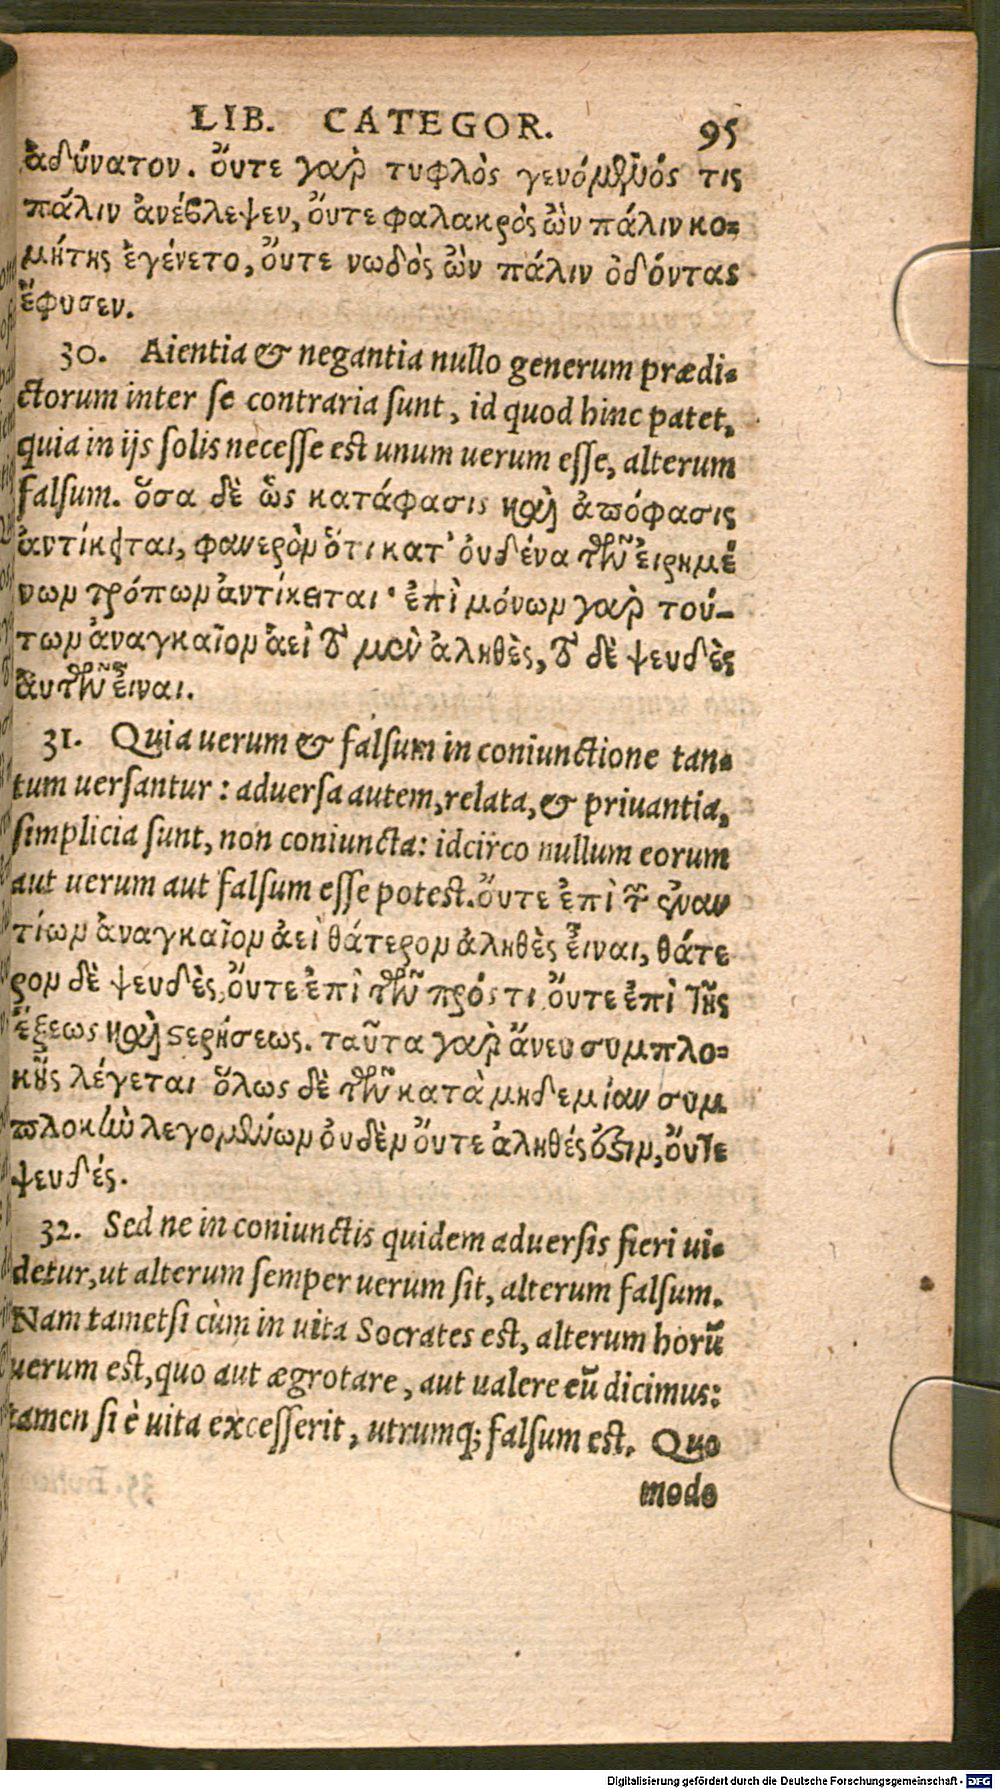 LIB. CATEGOR. 95
ἀδύνατον. ὄυτε γαρ τυφλὸς γενόμενός τις
πάλιν ἀνέβλεψεν, ὄυτε φαλακρὸς ὢν πάλιν κο=
μήτης ἐγένετο, ὄυτε νωδὸς ὢν πάλιν ὀδόντας
ἔφυσεν.
30. Aientia & negantia nullo generum prædi=
ctorum inter se contraria sunt, id quod hinc patet,
quia in ijs solis necesse est unum uerum esse, alterum
falsum. ὅσα δὲ ὡς κατάφασις καὶ ἀπόφασις
ἀντίκειται, φανερὸν ὅτι κατ' ὀυδένα τῶν ἐιρημέ
νων τρόπων ἀντίκειται· ἐπὶ μόνων γαρ τού-
των ἀναγκαῖον ἀεὶ τὸ μὲν ἀληθὲς, τὸ δὲ ψευδὲς
ἀυτῶν εἶναι.
31. Quia uerum & falsum in coniunctione tan=
tum uersantur: aduersa autem, relata, & priuantia,
simplicia sunt, non coniuncta: idcirco nullum eorum
aut uerum aut falsum esse potest. ὄυτε ἐπὶ τῶν ἐναν
τίων ἀναγκαῖον ἀεὶ θάτερον ἀληθὲς εἶναι, θάτε
ρον δὲ ψευδὲς, ὄυτε ἐπὶ τῶν πρός τι ὄυτε ἐπὶ τῆς
ἕξεως καὶ στερήσεως. ταῦτα γαρ ἄνευ συμπλο=
κῆς λέγεται ὅλως δὲ τῶν κατὰ μηδεμίαν συμ
πλοκὴν λεγομένων ὀυδὲν ὄυτε ἀληθές ἐστιν, ὄυτε
ψευδές.
32. Sed ne in coniunctis quidem aduersis fieri ui=
detur, ut alterum semper uerum sit, alterum falsum.
Nam tametsi cùm in uita Socrates est, alterum horũ
uerum est, quo aut ægrotare, aut ualere eũ dicimus:
tamen si è uita excesserit, utrumq; falsum est. Quo
modo
Digitalisierung gefördert durch die Deutsche Forschungsgemeinschaft - DFG